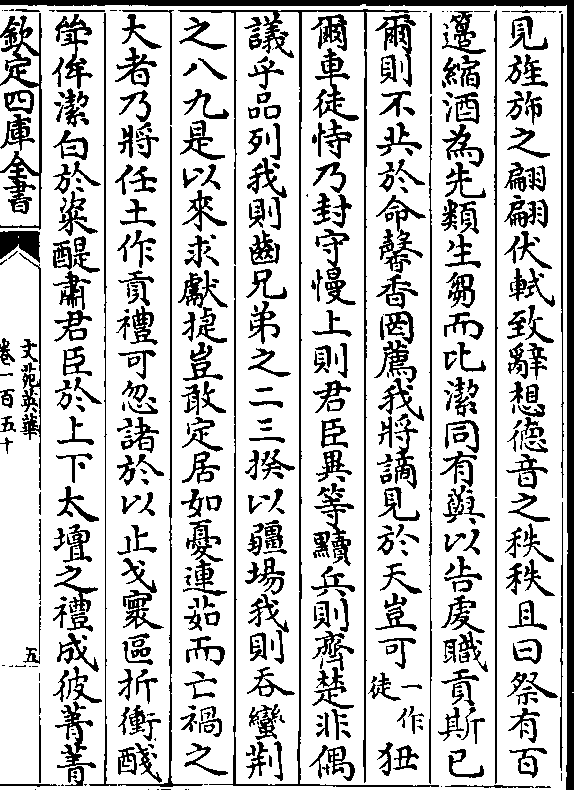 見旌斾之翩翩伏軾致辭想德音之秩秩且曰祭有百
邊縮酒為先類生芻而比潔同有與以告虔職貢斯已
爾則不共於命馨香罔薦我將謫見於天豈可一作徒狃
爾車徒恃乃封守慢上則君臣異等黷兵則齊楚非偶
議乎品列我則齒兄弟之二三揆以疆場我則吞蠻荆
之八九是以來求獻捷豈敢定居如憂連茹而亡禍之
大者乃將任土作貢禮可忽諸於以止戈寰區折衝醆
斝侔潔白於粢醍肅君臣於上下太壇之禮成彼菁菁
欽定四庫全書
文苑英華
卷一百五十
五